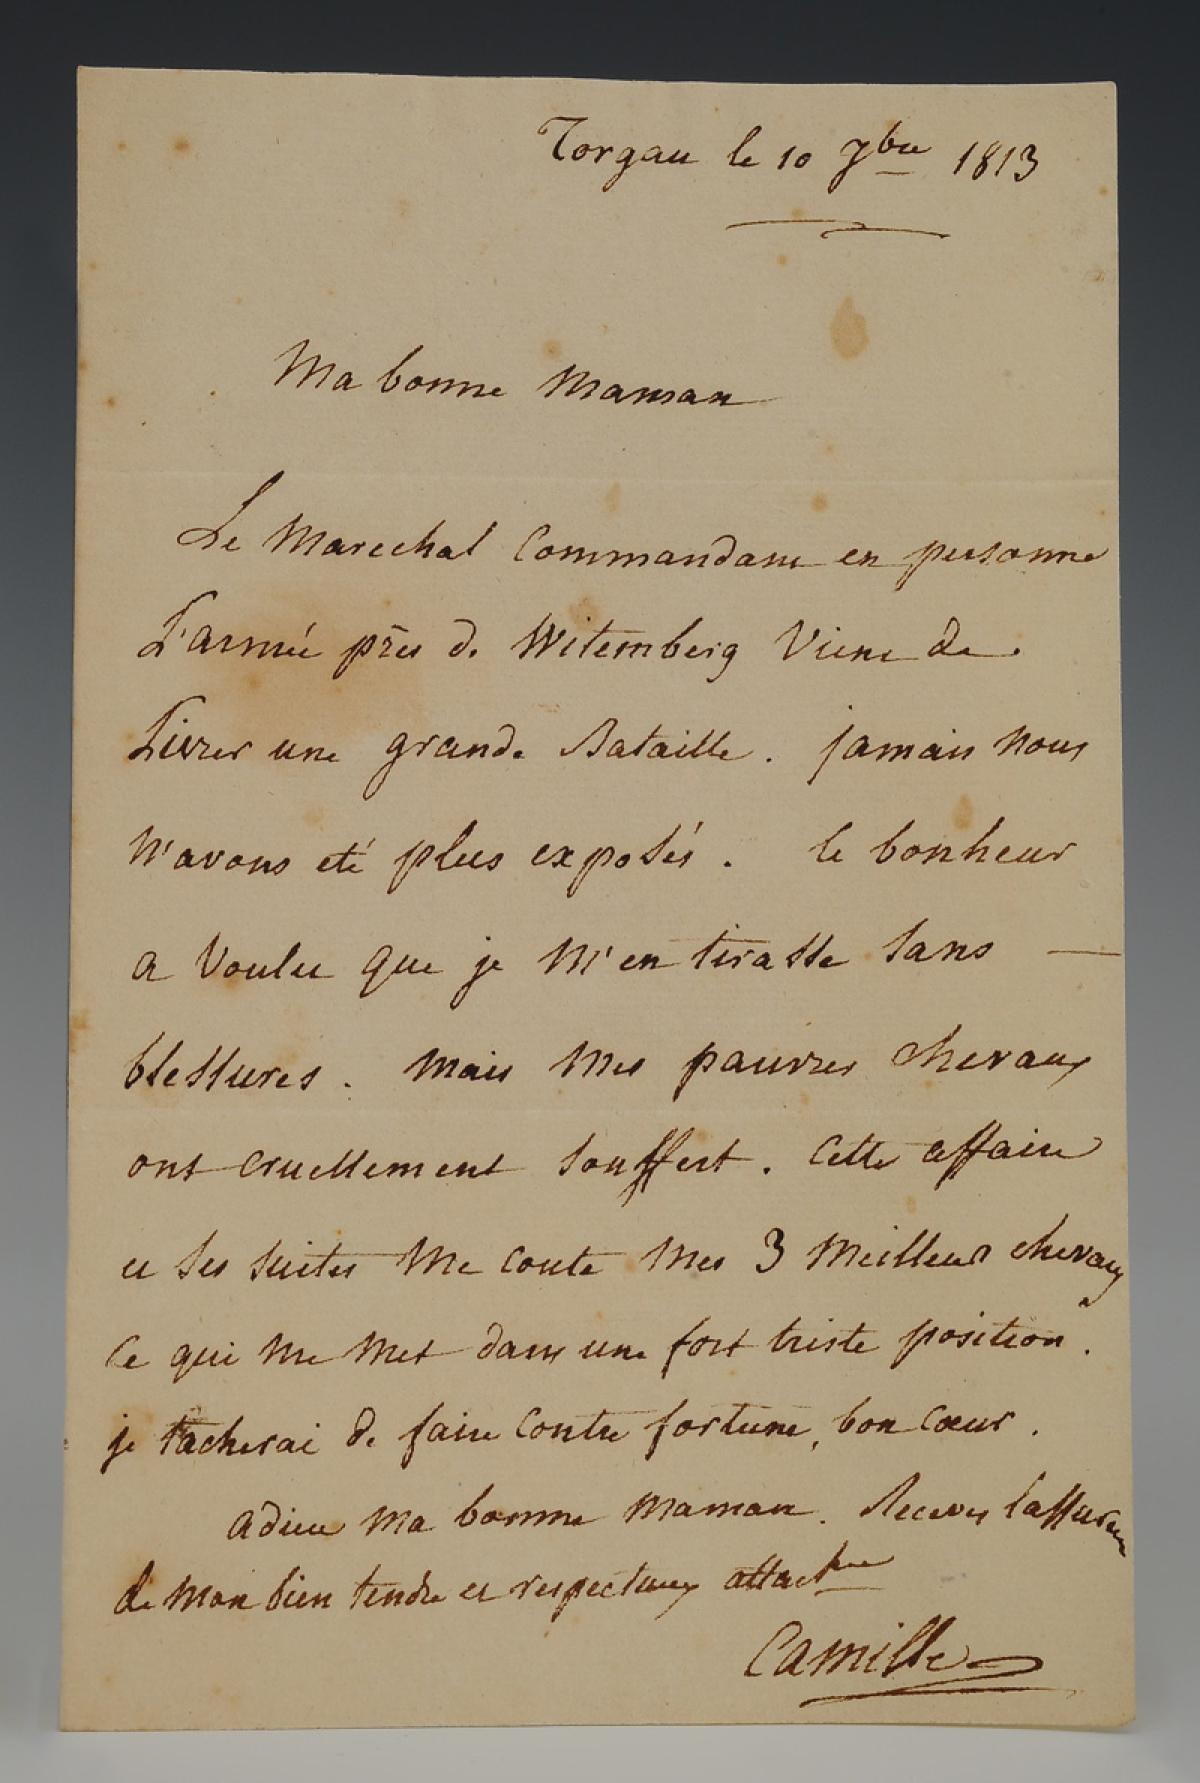 Torgau le 10 7bre 1813
Ma bonne Maman
Le Marechal Commandant en personne
L'armée près de Witemberg Vient de
Livrer une grande Bataille. jamais nous
N'avons eté plus exposés. le bonheur
a Voulu que je M'en tirasse sans —
blessures. Mais Mes pauvres chevaux
ont cruellement souffert. Cette affaire
et ses suites Me coute Mes 3 Meilleurs chevaux
ce qui Me Met dans une fort triste position.
je tacherai de faire contre fortune, bon cœur.
adieu Ma bonne Maman. Recevez l'assurance
de Mon bien tendre et respectueux attachme
Camille